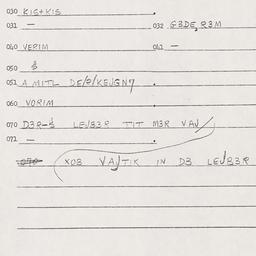 030 KIS+KIS
031 — 032 G3DE, R3M
040 VERIM 041 —
050 ⅓
051 A MITL DE/2/KEUGN7
060 VORIM
070 D3R-⅓ LEUB3R TIT M3R VAV/
071 —
XOB VAJTIK IN D3 LEUB3R